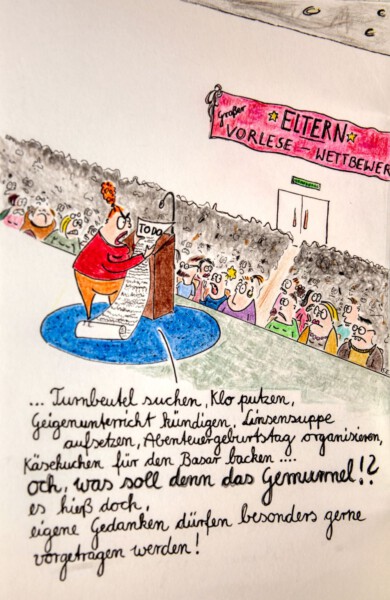 Großer
☆ ELTERN ☆
VORLESE – WETTBEWER
TO DO
... Turnbeutel suchen, Klo putzen,
Geigenunterricht kündigen, Linsensuppe
aufsetzen, Abenteuergeburtstag organisieren,
Käsekuchen für den Basar backen ....
och, was soll denn das Gemurmel!?
es hieß doch,
eigene Gedanken dürfen besonders gerne
vorgetragen werden!